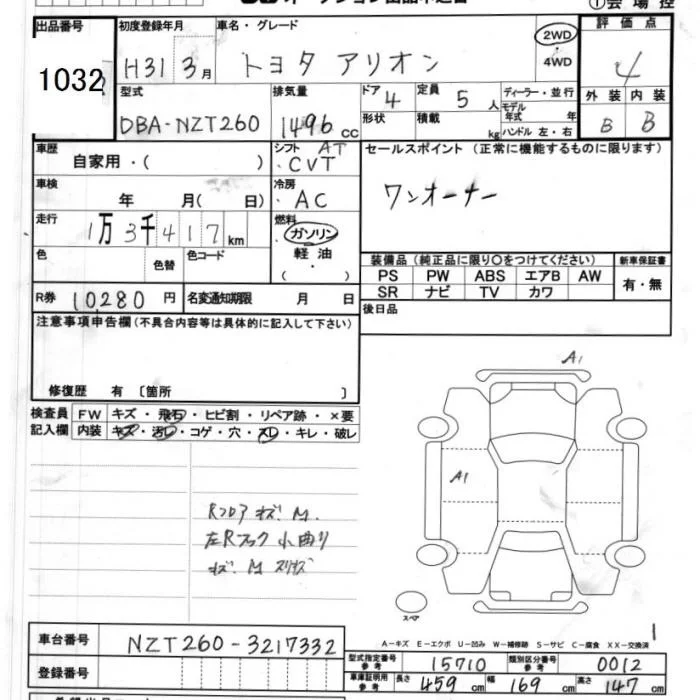 出品番号 初度登録年月 車名・グレード 2WD 評価点
1032 H31 3月 トヨタ アリオン ・ 4WD 4
型式 排気量 ドア 4 定員 5 人 ディーラー・並行 外装 内装
DBA-NZT260 1496 cc 形状 積載 kg モデル年式 年 B B
ハンドル 左・右
車歴 シフト AT セールスポイント (正常に機能するものに限ります)
自家用・( ) ・CVT
車検 冷房 ワンオーナー
年 月( 日) ・AC
走行 1万3千417km 燃料 ガソリン
軽油
色 色替 色コード 装備品(純正品に限り○をつけてください) 新車保証書
PS PW ABS エアB AW 有・無
SR ナビ TV カワ
R券 10,280 円 名変通知期限 月 日 後日品
注意事項申告欄(不具合内容等は具体的に記入して下さい)
修復歴 有 〔箇所 〕
検査員 FW キズ・飛石・ヒビ割・リペア跡・×要
記入欄 内装 キズ・汚レ・コゲ・穴・スレ・キレ・破レ
A1
A1
Rフロア キズ M.
左Rフック 小曲り
キズ M スリキズ
スペア
A-キズ E-エクボ U-凹み W-補修跡 S-サビ C-腐食 XX-交換済
車台番号 NZT260-3217332
型式指定番号 参考 15710 類別区分番号 参考 0012
登録番号 車庫証明用 参考 長さ 459 cm 幅 169 cm 高さ 147 cm